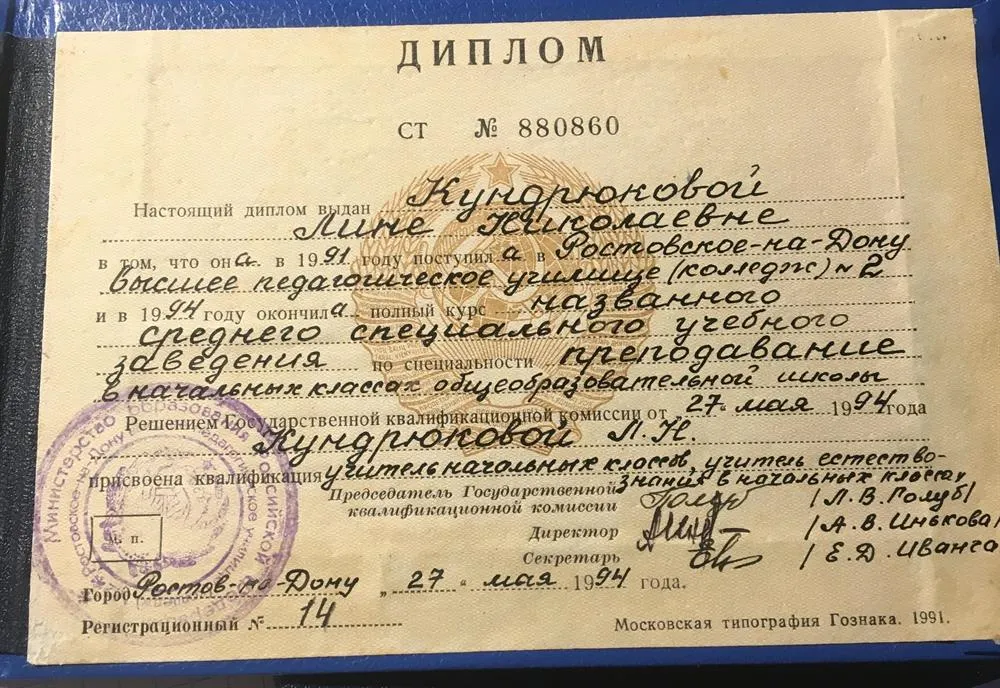 ДИПЛОМ
СТ № 880860
Настоящий диплом выдан Кундрюковой
Лине Николаевне
в том, что она в 1991 году поступила в Ростовское-на-Дону
высшее педагогическое училище (колледж) №2
и в 1994 году окончила полный курс названного
среднего специального учебного
заведения по специальности преподавание
в начальных классах общеобразовательной школы
Решением Государственной квалификационной комиссии от „27" мая 1994 года
Кундрюковой Л.Н.
присвоена квалификация учитель начальных классов, учитель естество-
знания в начальных классах
Председатель Государственной
квалификационной комиссии Голуб /Л.В.Голуб/
Директор /А.В.Инькова/
Секретарь /Е.Д.Иванга
М. П.
Министерство образования Российской
Город Ростов-на-Дону „27" мая 1994 года.
Регистрационный № 14
Московская типография Гознака. 1991.